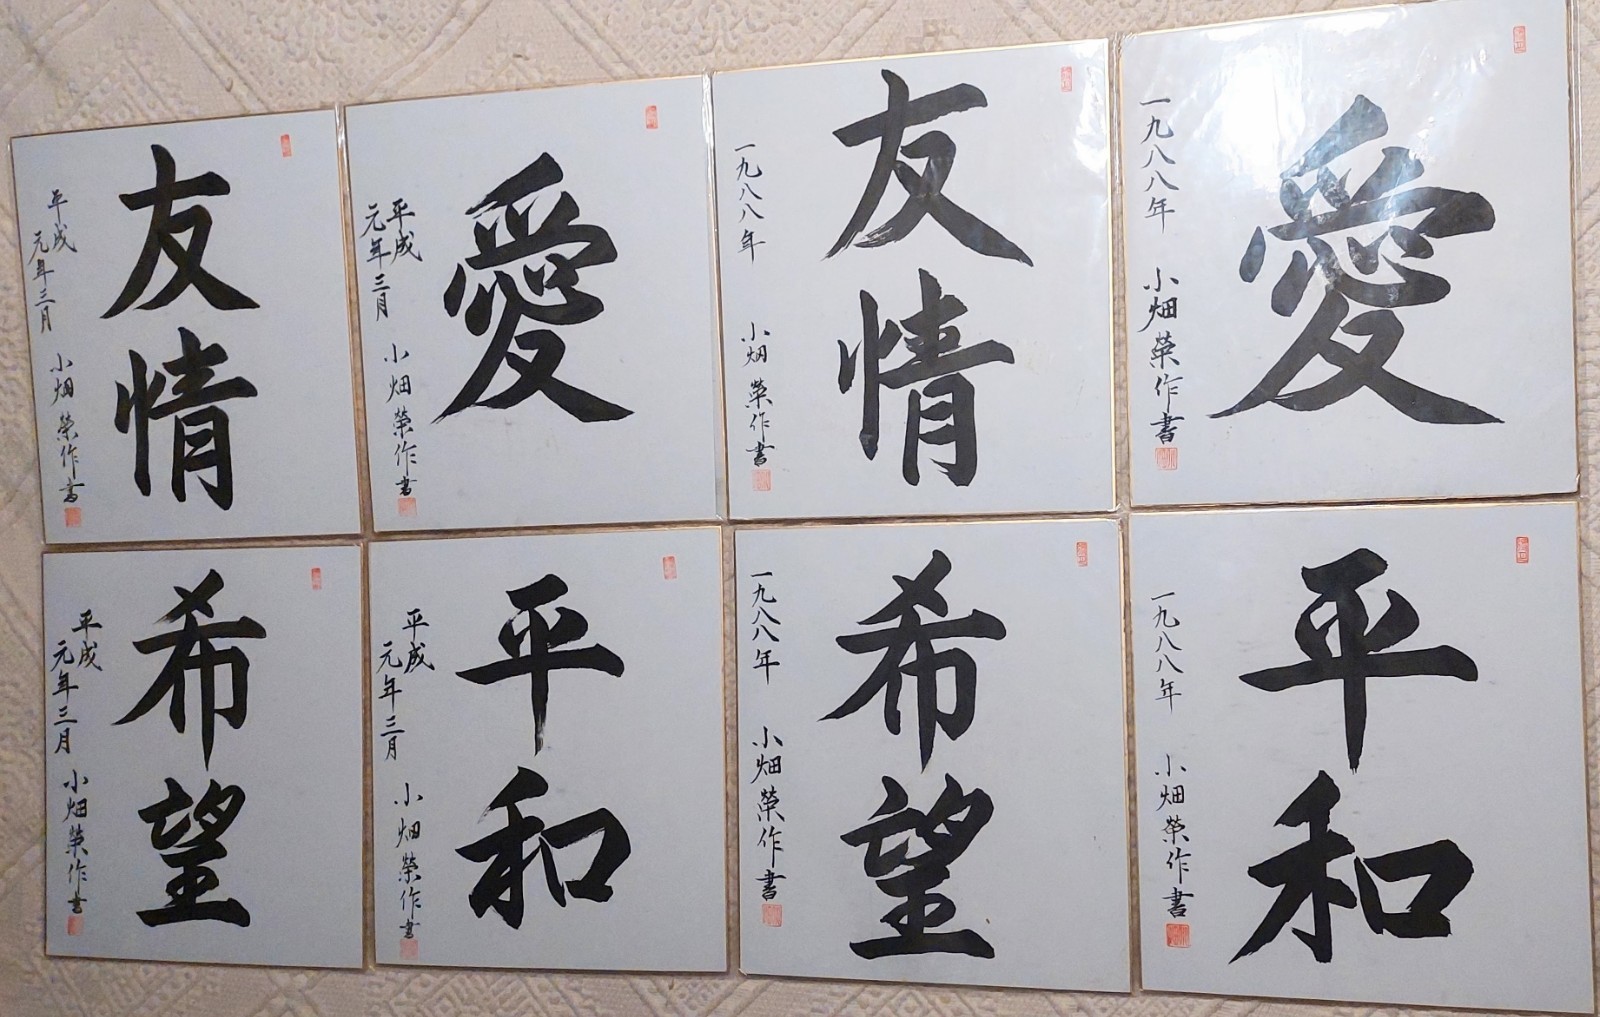 友情
平成
元年三月
小畑榮作書
愛
平成
元年三月
小畑榮作書
友情
一九八八年
小畑榮作書
愛
一九八八年
小畑榮作書
希望
平成
元年三月
小畑榮作書
平和
平成
元年三月
小畑榮作書
希望
一九八八年
小畑榮作書
平和
一九八八年
小畑榮作書